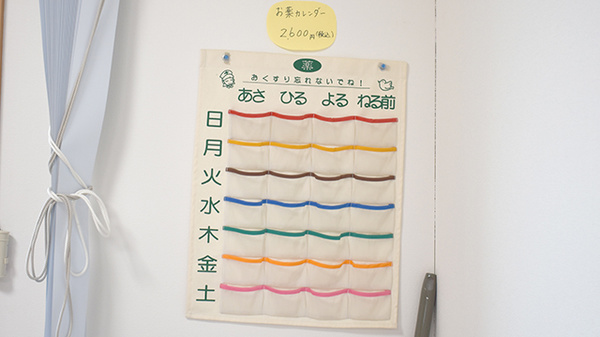 お薬カレンダー
2600円(税込)
薬
おくすり忘れないでね!
あさ ひる よる ねる前
日
月
火
水
木
金
土